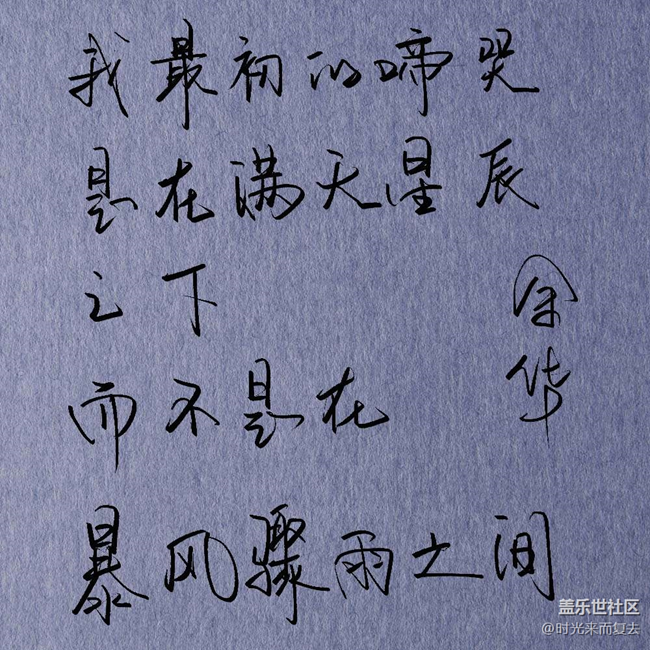 我最初的啼哭
是在满天星辰
之下
而不是在
暴风骤雨之间
余华
盖乐世社区
@时光来而复去